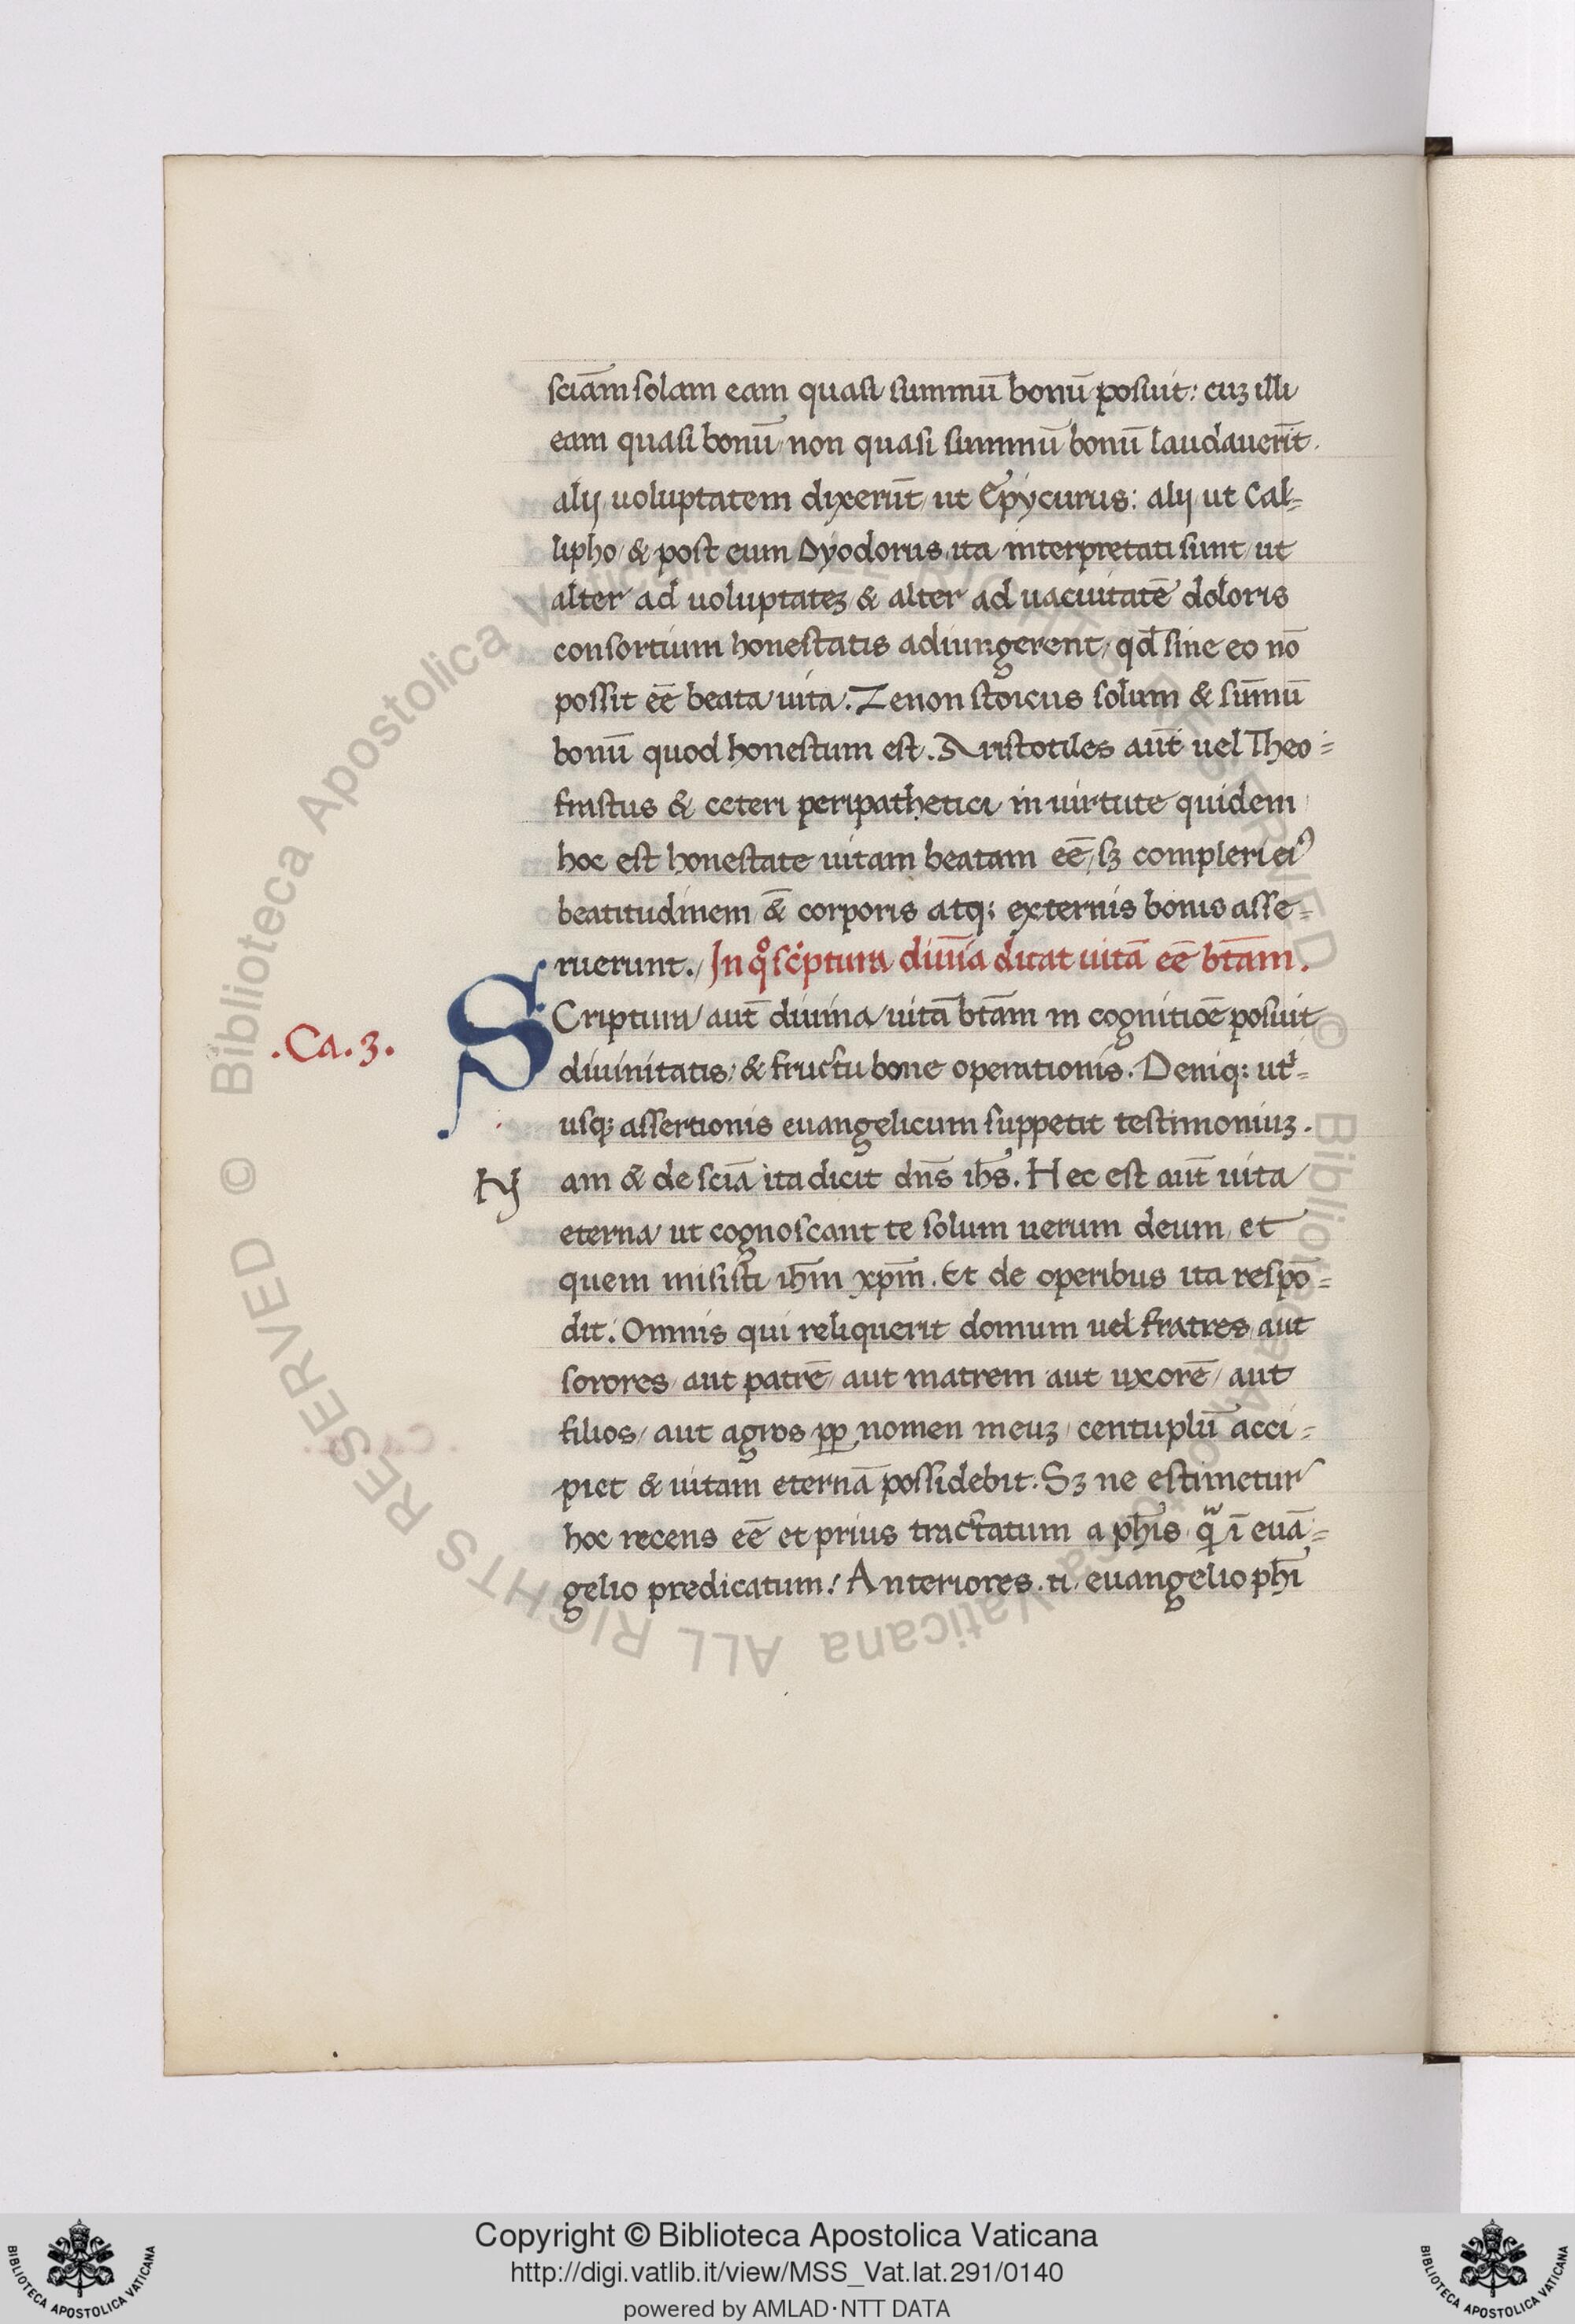 sciā̄m solam eam quasi summū bonū posuit: cuꝫ illi
eam quasi bonū non quasi summū bonū laudauerīt.
alij uoluptatem dixerūt ut Epycurus: alij ut Cal-
lipho & post eum Dyodorus ita interpretati sunt ut
alter ad uoluptateꝫ & alter ad uacuitatē doloris
consortium honestatis adiungerent, qđ sine eo nō
possit eē beata uita. Zenon stoicus solum & sūmū
bonū quod honestum est. Aristotiles aūt uel Theo=
frastus & ceteri peripathetici in uirtute quidem
hoc est honestate uitam beatam eē, sꝫ compleri ei⁹
beatitudinem & corporis atq; externis bonis asse=
ruerunt. In qͦ sc͛ptura diuīa dicat uitā eē btām.
.Ca.3.
SCriptura aut̄ diuina uitā btām in cognitiōe posuit
diuinitatis: & fructu bone operationis. Deniq; utͥ=
usq; assertionis euangelicum suppetit testimoniuꝫ.
Nam & de sciā ita dicit dn̄s ih̄s. Hec est aut̄ uita
eterna ut cognoscant te solum uerum deum, et
quem misisti ih̄m xp̄m. Et de operibus ita respō=
dit. Omnis qui reliquerit domum uel fratres aut
sorores aut patrē aut matrem aut uxorē, aut
filios, aut agros ꝓp nomen meuꝫ, centuplū acci=
piet & uitam eternā possidebit. Sꝫ ne estimetur
hoc recens eē et prius tractatum a ph̄is qͣ̄ ī euā=
gelio predicatum! Anteriores .n. euangelio ph̄i
Copyright © Biblioteca Apostolica Vaticana
http://digi.vatlib.it/view/MSS_Vat.lat.291/0140
powered by AMLAD·NTT DATA
BIBLIOTECA APOSTOLICA VATICANA
BIBLIOTECA APOSTOLICA VATICANA
© Biblioteca Apostolica Vaticana ALL RIGHTS RESERVED © Biblioteca Apostolica Vaticana ALL RIGHTS RESERVED